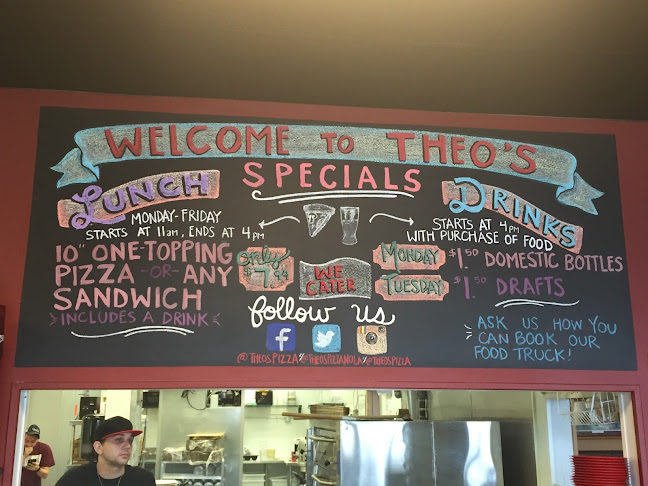 WELCOME TO THEO'S
SPECIALS
LUNCH
MONDAY-FRIDAY
STARTS AT 11am, ENDS AT 4pm
10" ONE-TOPPING
PIZZA -OR- ANY
SANDWICH
INCLUDES A DRINK
only
$7.99
WE
CATER
DRINKS
STARTS AT 4pm
WITH PURCHASE OF FOOD
MONDAY $1.50 DOMESTIC BOTTLES
TUESDAY $1.50 DRAFTS
follow us
f
@THEOSPIZZA//@THEOSPIZZANOLA//@THEOSPIZZA
ASK US HOW YOU
CAN BOOK OUR
FOOD TRUCK!